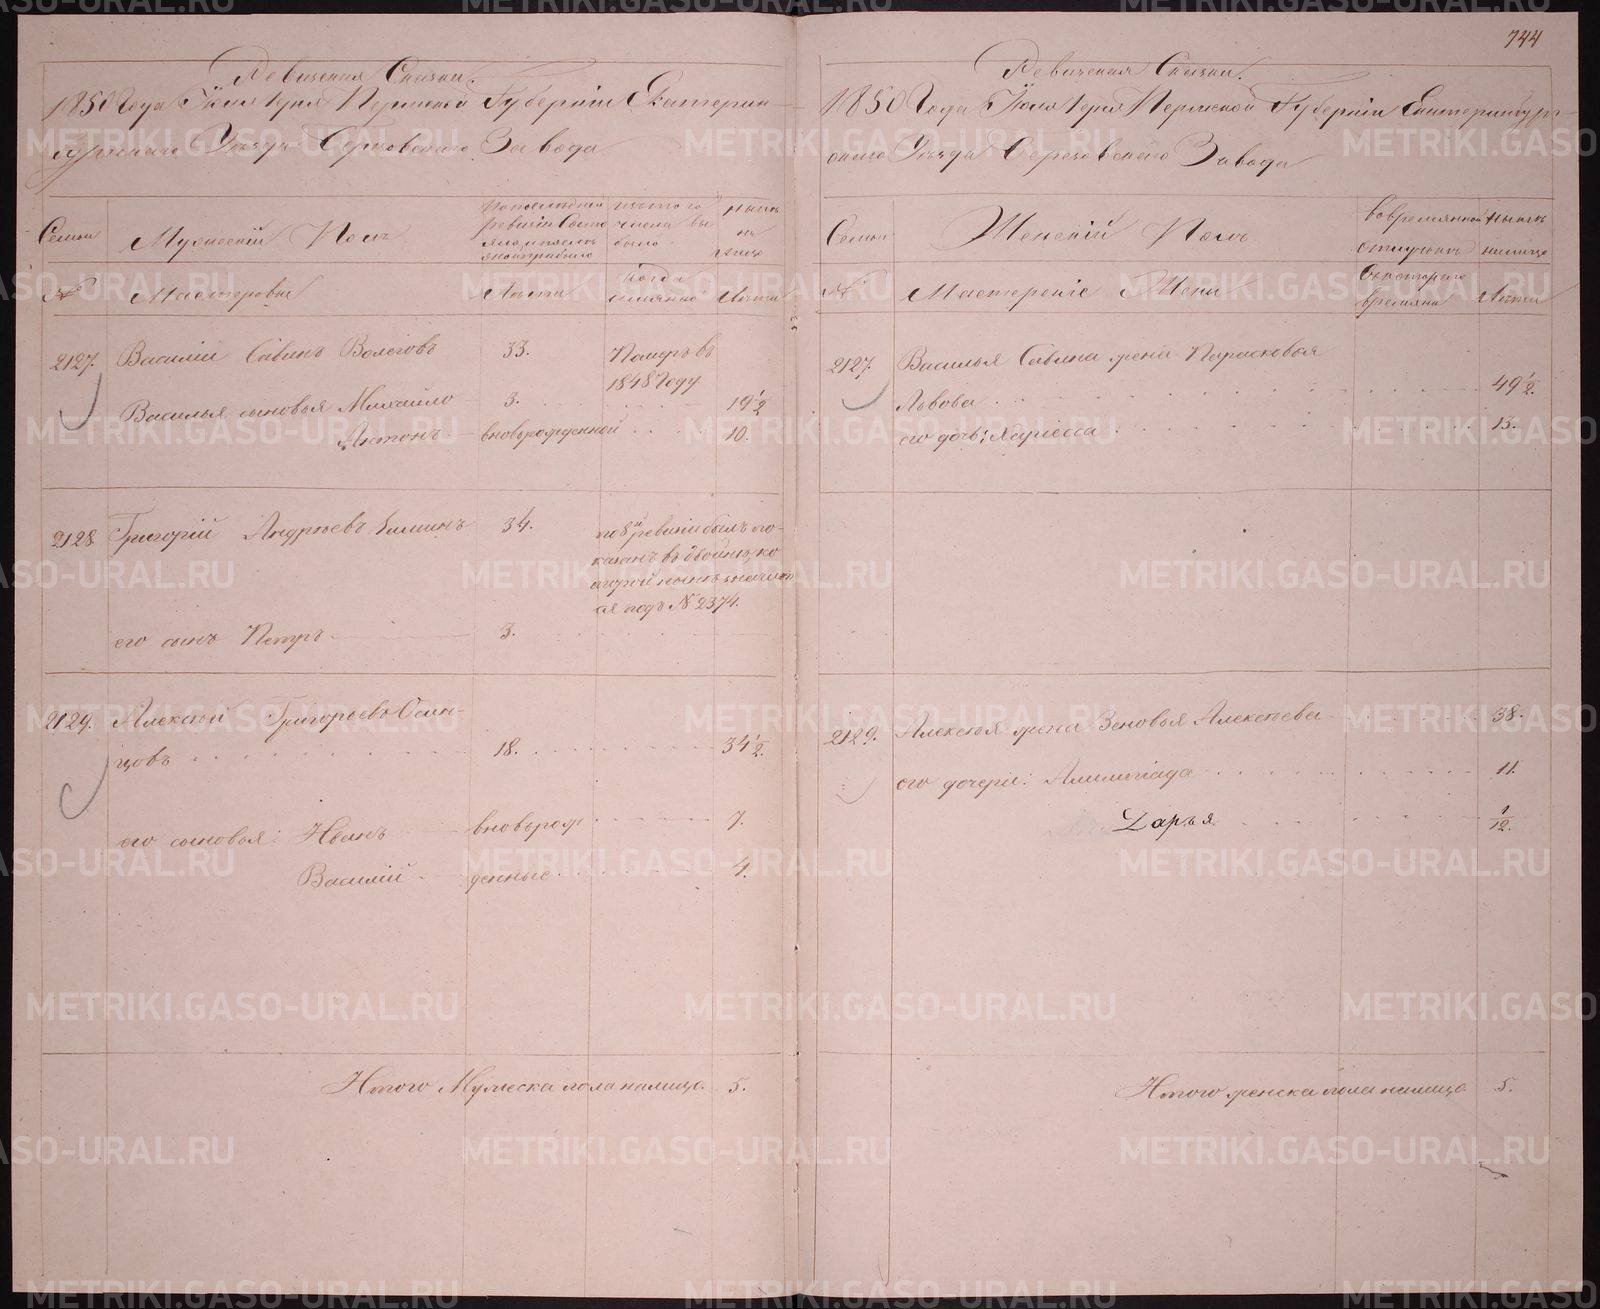 744
Ревизская Сказка.
1850 Года Іюля 1 дня Пермской Губерніи Екатерин-
бургскаго Уѣзда Березовскаго Завода
Семьи
Мужескій Полъ
По последней
ревизіи Состо
яло и послѣ
оной прибыло
изъ того
числа вы
было
нынѣ
на
лицо
№
Мастеровые
Лѣта
Когда
именно
Лѣта
2127.
Василій Савинъ Волеговъ
33.
Померъ въ
1848 Году
Василья сыновья Михайло
3.
19 1/2
Антонъ
вновьрожденной
10.
2128
Григорій Андреевъ
34.
по 8й ревизіи былъ по-
казанъ въ двойнѣ, ко
торой нынѣ значит
ся подъ № 2374.
его сынъ Петръ
3.
2129.
Алексѣй Григорьевъ Осин-
цовъ
18.
34 1/2.
его сыновья: Иванъ
вновьрож
7.
Василій
денные
4.
Итого Мужеска пола налицо
5.
Ревизская Сказка.
1850 Года Іюля 1 дня Пермской Губерніи Екатеринбург-
скаго Уѣзда Березовскаго Завода
Семьи
Женскій Полъ
во временной
отлучкѣ
нынѣ
налицо
№
Мастерскіе Жены
Съ котораго
времяни
Лѣта
2127.
Василья Савина жена Парасковья
Львова
49 1/2.
его дочь: Лариссa
13.
2129.
Алексѣя жена Зеновья Алексѣева
38.
его дочери: Алимпіада
11.
Дарья
1/12.
Итого женска пола налицо
5.
METRIKI.GASO-URAL.RU